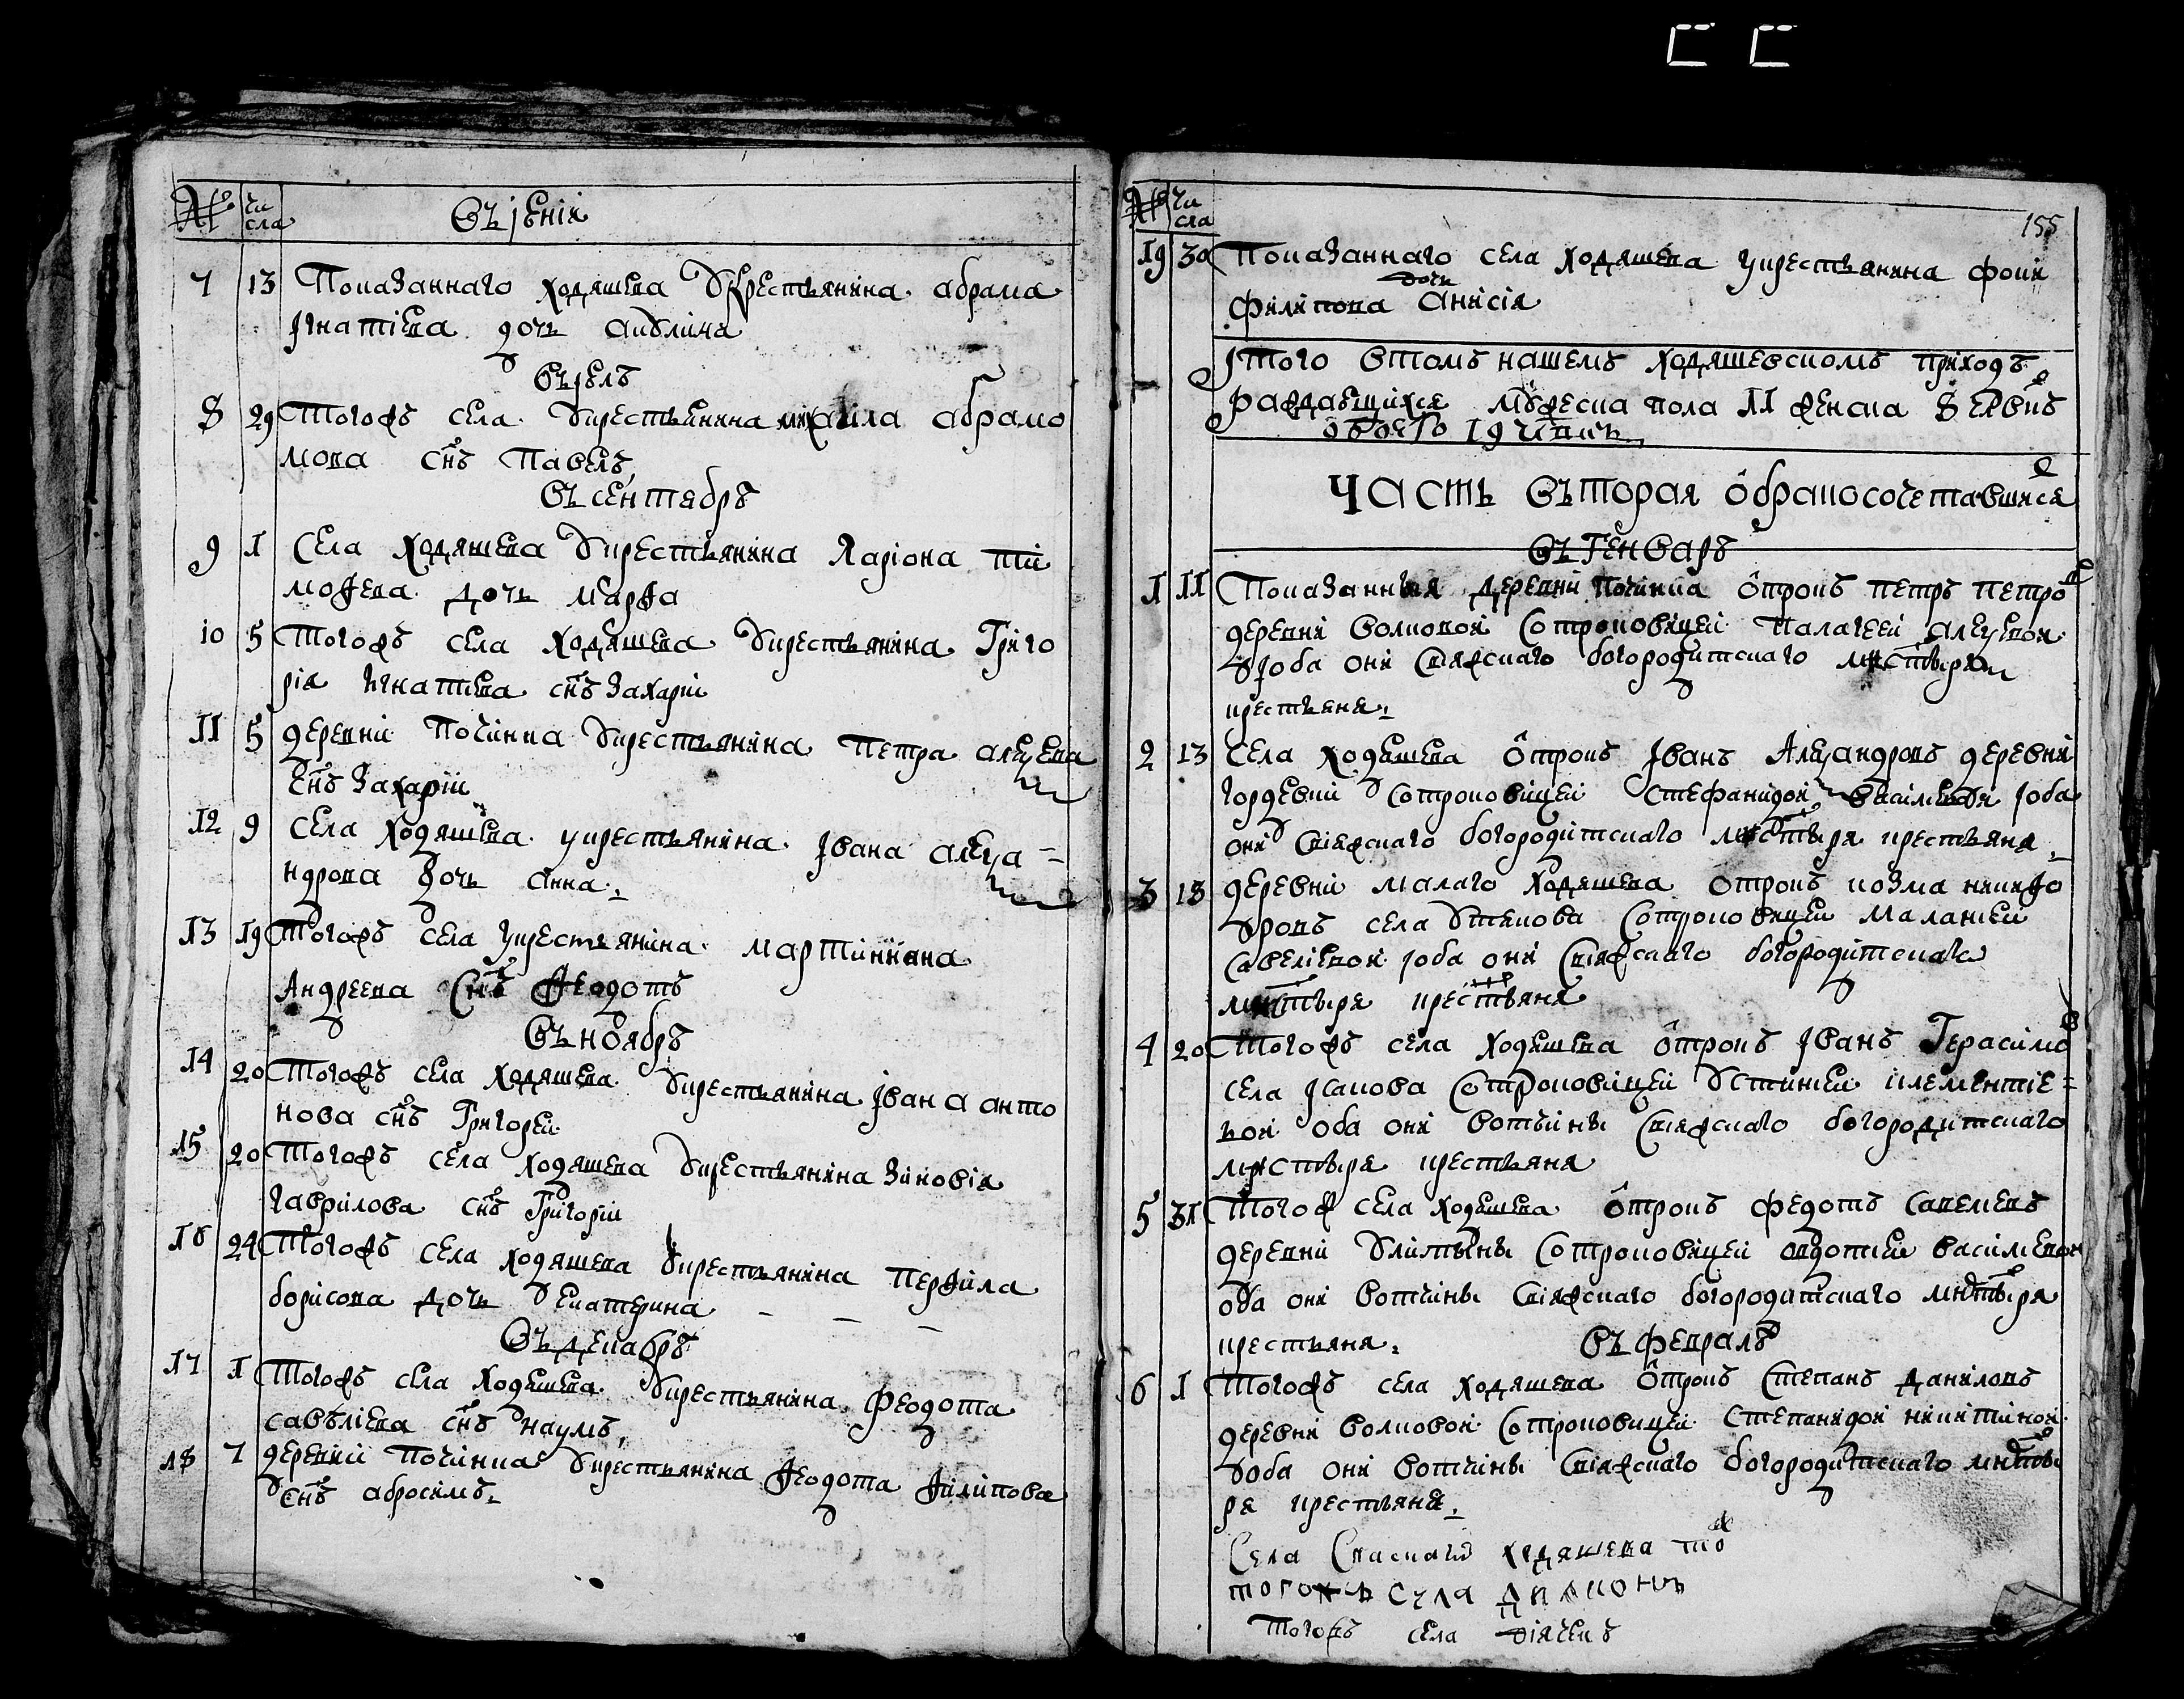 № Чи
сла
Въ iюнiя
7 13 Показаннаго Ходяшева Ꙋкрестьянина абрама
Iгнатiева дочь акулина
Въ iюлѣ
8 29 Тогожъ села Ꙋкрестьянина михаила абрамо
мова снъ Павелъ
Въ сентябрѣ
9 1 Села Ходяшева Ꙋкрестьянина Ларiона ти
мофеева дочь марѳа
10 5 Тогожъ села Ходяшева Ꙋкрестьянина Григо
рiя Игнатиева снъ Захарiи
11 5 деревни Починка Ꙋкрестьянина Петра алеѯеева
снъ Захарiи
12 9 Села Ходяшева укрестьянина Iвана алеѯа=
ндрова дочь анна
13 19 Тогожъ села укрестьянина мартинiяна
Андреева Снъ Ѳеодотъ
Въ ноябрѣ
14 20 Тогожъ села Ходяшева Ꙋкрестьянина Iвана анто
нова снъ Григореи
15 20 Тогожъ села Ходяшева Ꙋкрестьянина Зиновiя
гаврилова снъ Григорiи
16 24 Тогожъ села Ходяшева Ꙋкрестьянина Перѳила
борисова дочь Екатерина
Въ декабрѣ
17 1 Тогожъ села Ходяшева Ꙋкрестьянина Феодота
савѣлiева снъ наумъ
18 7 деревни Починка Ꙋкрестьянина Ѳеодота Ѳилипова
снъ абросимъ
№ Чи
сла
155
19 30 Показаннаго села Ходяшева укрестьянина фоки
филипова дочь Анисiя
Iтого втомъ нашемъ ходяшевскомъ приходѣ
раждающихся мужеска пола 11 женска 8
обоего 19 члвкъ
Часть въторая ѻбракосочетавшихся
Въ Генварѣ
1 11 Показанныя деревни Починка ѻтрокъ петръ петро
деревни волковои Сотроковицеи палагеею алеѯеевои
Ꙋоба они Свiяжскаго богородитскаго мнстыря
крестьяня
2 13 Села Ходяшева ѻтрокъ Iванъ Алеѯандровъ деревни
гордевки Сотроковицеи Стефанидои васильевои iоба
они Свiяжскаго богородитскаго мнстыря крестьяня
3 13 деревни малаго Ходяшева отрокъ козма никиѳо
ровъ села Ꙋтякова Сотроковицеи маланьеи
Савелiевои iоба они Свiяжскаго богородитскаго
мнстыря крестьяня
4 20 Тогожъ села Ходяшева ѻтрокъ Iванъ Герасимов
села Iсакова Сотроковицеи Ꙋстиньеи клементiе=
вои оба они вотчины Свiяжскаго богородитскаго
мнстыря крестьяня
5 31 Тогож села Ходяшева ѻтрокъ федотъ Савелиевъ
деревни Сотроковицеи авдотьеи васильевои
оба они вотчины Свiяжскаго богородитскаго мнстыря
крестьяня. Въ февралѣ
6 1 Тогожъ села Ходяшева ѻтрокъ Степанъ даниловъ
деревни волковои Сотроковицеи Степанидои никитинои
Ꙋоба они вотчины Свiяжскаго богородитскаго мнсты
ря крестьяня
Села Спаскаго Ходяшева
тогожъ Села дияконъ
Тогожъ села дiячекъ